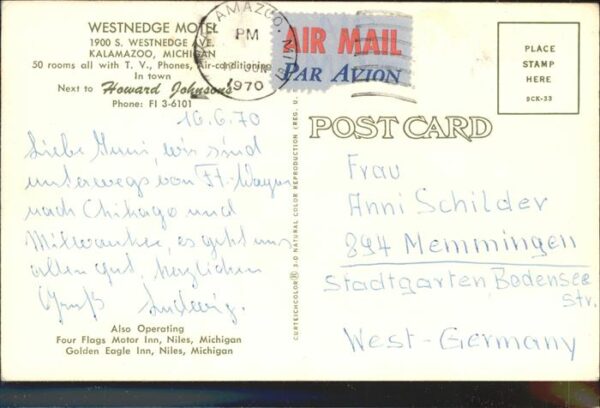 WESTNEDGE MOTEL
1900 S. WESTNEDGE AVE.
KALAMAZOO, MICHIGAN
50 rooms all with T. V., Phones, Air-conditioning
In town
Next to Howard Johnsons
Phone: FI 3-6101
KALAMAZOO, MICH
PM
JUN
1970
AIR MAIL
PAR AVION
PLACE
STAMP
HERE
9CK-33
POST CARD
16.6.70
Liebe Anni, wir sind
unterwegs von Ft. Wayne
nach Chikago und
Milwaukee, es geht uns
allen gut, herzlichen
Gruß Ludwig.
Frau
Anni Schilder
894 Memmingen
Stadtgarten Bodensee
Str.
West-Germany
CURTEICHCOLOR® 3-D NATURAL COLOR REPRODUCTION (REG. U.
Also Operating
Four Flags Motor Inn, Niles, Michigan
Golden Eagle Inn, Niles, Michigan